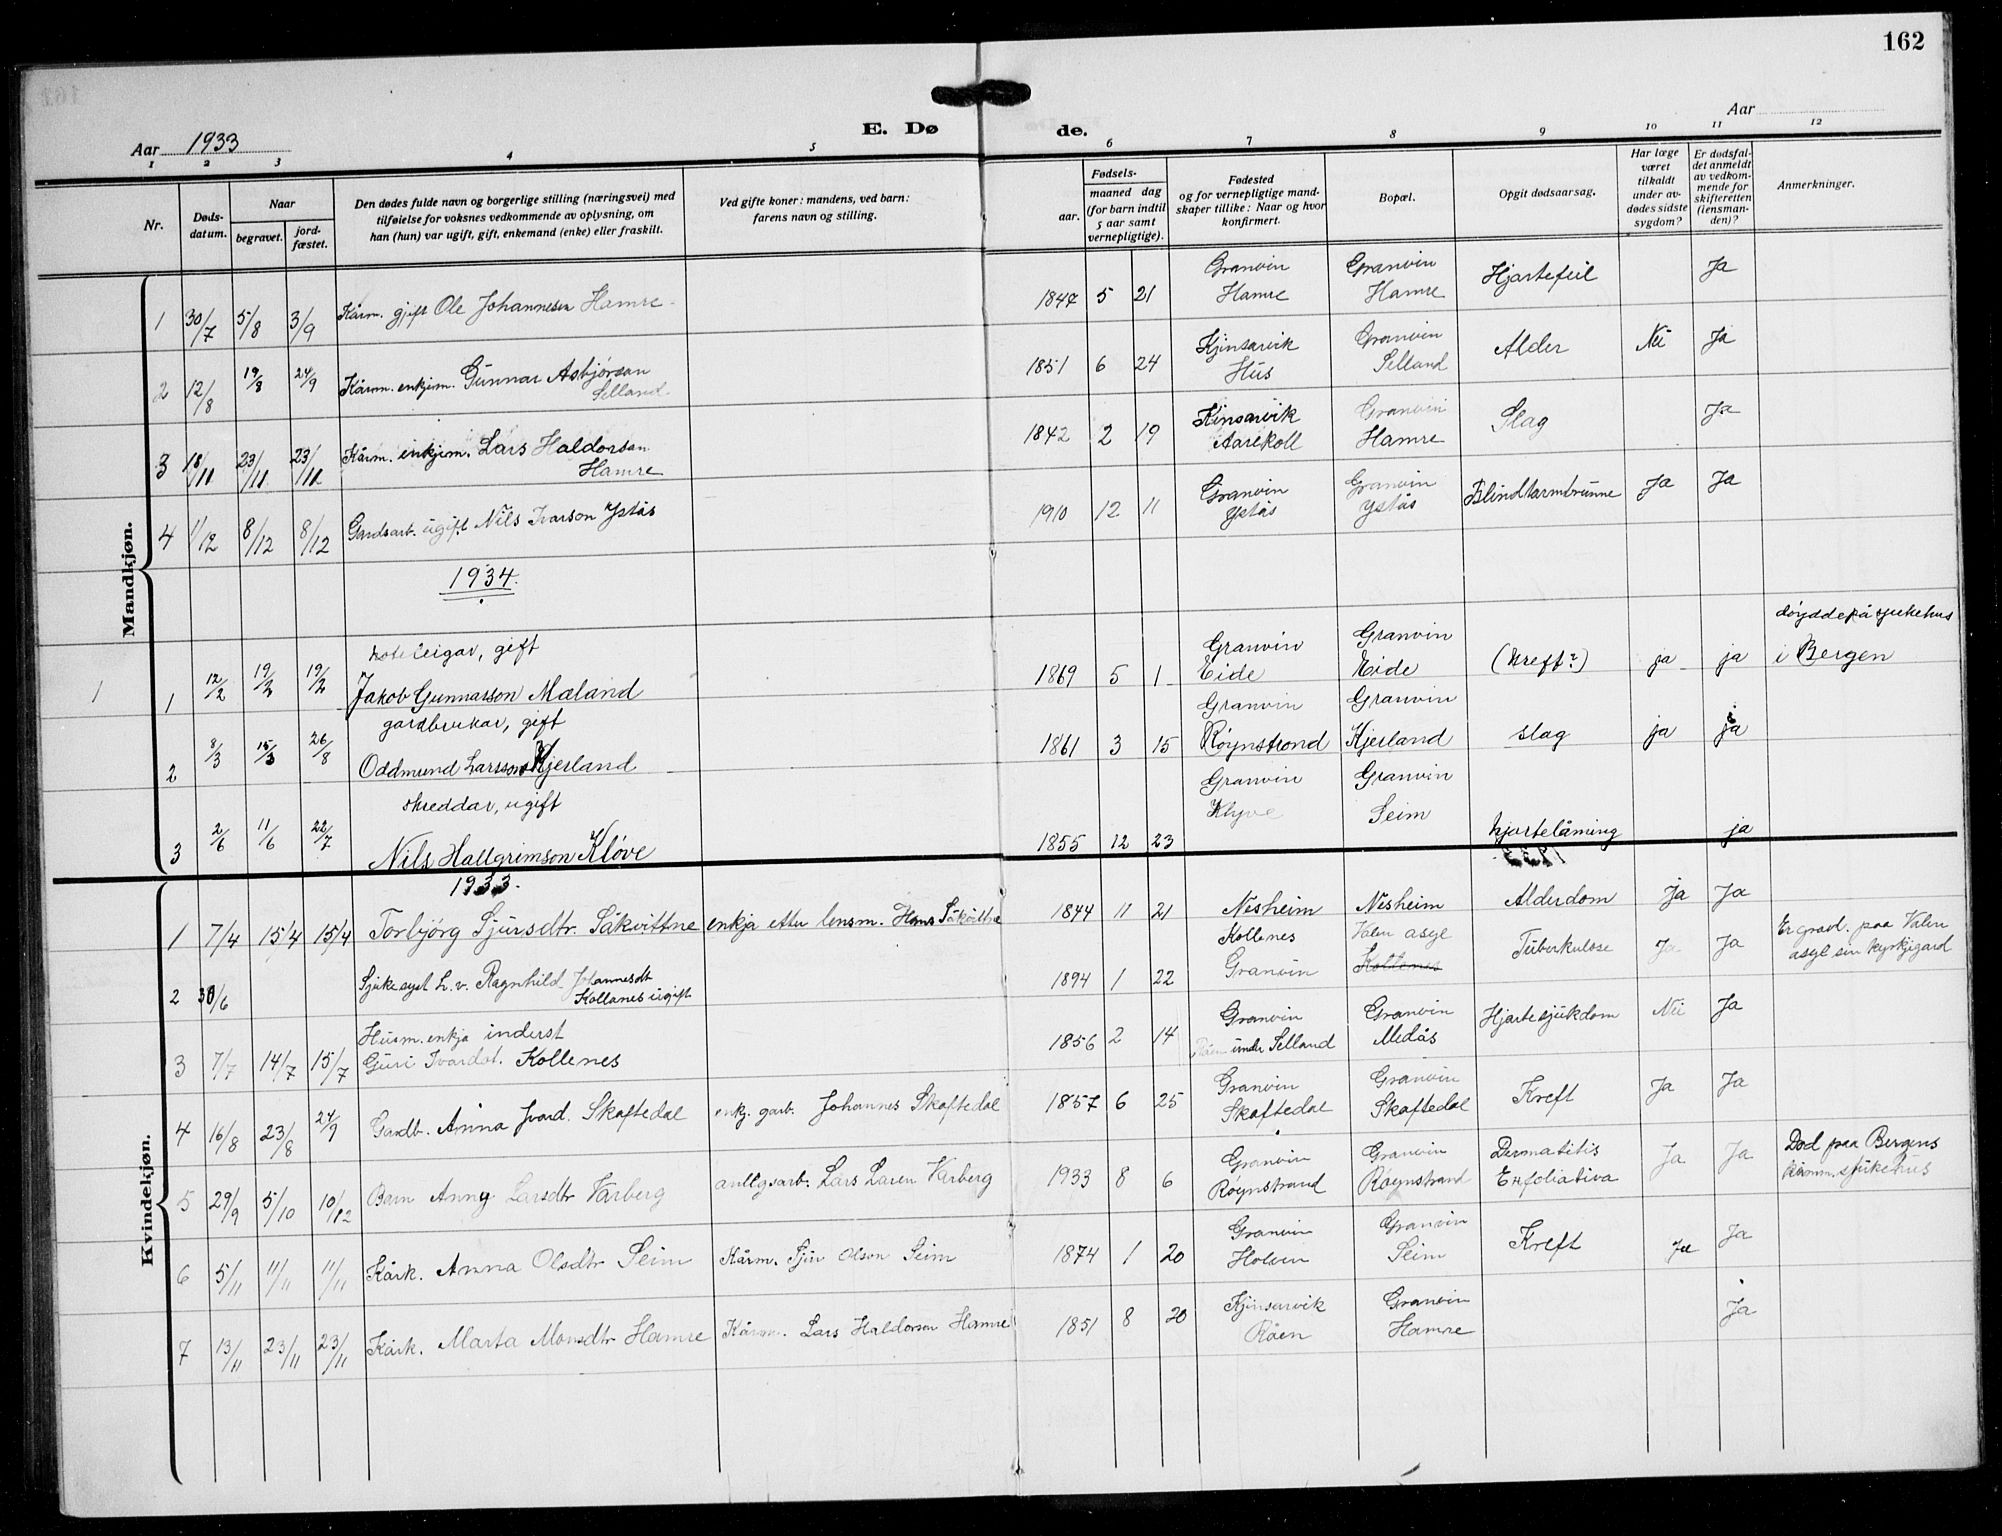 162
Aar 1933
E. Dø de.
Aar
1 2 3 4 5 6 7 8 9 10 11 12
Nr.
Døds-
datum.
Naar
begravet.
jord-
fæstet.
Den dødes fulde navn og borgerlige stilling (næringsvei) med
tilføielse for voksnes vedkommende av oplysning, om
han (hun) var ugift, gift, enkemand (enke) eller fraskilt.
Ved gifte koner: mandens, ved barn:
farens navn og stilling.
Fødsels-
aar.
maaned dag
(for barn indtil
5 aar samt
vernepligtige).
Fødested
og for vernepligtige mand-
skaper tillike: Naar og hvor
konfirmert.
Bopæl.
Opgit dødsaarsag.
Har læge
været
tilkaldt
under av-
dødes sidste
sygdom?
Er dødsfal-
det anmeldt
av vedkom-
mende for
skifteretten
(lensman-
den)?
Anmerkninger.
Mandkjøn.
Granvin Granvin Hjartefeil Ja
1 30/7 5/8 3/9 Kårm. gift Ole Johannesen Hamre 1847 5 21 Hamre Hamre
Kjinsarvik Granvin Alder Nei Ja
2 12/8 19/8 24/9 Kårm. enkjem. Gunnar Asbjørson 1851 6 24 Hus Selland
Selland
Kinsarvik Granvin Slag Ja
3 18/11 23/11 23/11 Kårm. enkjem. Lars Haldorson 1842 2 19 Aarekoll Hamre
Hamre
Granvin Granvin Blindtarmbrunne Ja Ja
4 1/12 8/12 8/12 Gardsarb. ugift Nils Ivarson Ystås 1910 12 11 Ystås Ystås
1934.
hoteleigar, gift Granvin Granvin døydde på sjukehus
1 1 12/2 19/2 19/2 Jakob Gunnarsson Mæland 1869 5 1 Eide Eide (kreft?) ja ja i Bergen
gardbrukar, gift Granvin Granvin
2 8/3 15/3 26/8 Oddmund Larsson Kjerland 1861 3 15 Røynstrond Kjerland slag ja ja
skreddar, ugift Granvin Granvin
3 2/6 11/6 22/7 Nils Hallgrimson Kløve 1855 12 23 Klyve Seim hjartelåming ja
Kvindekjøn.
1933.
1 7/4 15/4 15/4 Torbjörg Sjursdtr. Såkvittne enkja etter lensm. Hans Såkvittne 1844 11 21 Nesheim Nesheim Alderdom Ja Ja
Kollenes Valen asyl Tuberkulose Ja Ja Er gravl. paa Valen
2 30/6 Sjukesyst L. v. Ragnhild Johannesdt 1894 1 22 Granvin Kollenes asyl sin kyrkjegard
Kollanes ugift
Husm. enkja inderst Granvin Granvin Hjartesjukdom Nei Ja
3 7/7 14/7 15/7 Guri Ivardot. Kollenes 1856 2 14 under Selland Medås
Granvin Granvin Kreft Ja Ja
4 16/8 23/8 24/9 Gardb. Anna Ivard. Skaftedal enkj. garb. Johannes Skaftedal 1857 6 25 Skaftedal Skaftedal
Granvin Granvin Dermatitis Ja Ja Død paa Bergens
5 29/9 5/10 10/12 Barn Anny Larsdtr Varberg anllgsarb. Lars Larsen Varberg 1933 8 6 Røynstrand Røynstrand Exfoliativa Komm. sjukehus
Granvin Granvin Kreft Ja Ja
6 5/11 11/11 11/11 Kårk. Anna Olsdtr Seim Kårm. Sjur Olson Seim 1874 1 20 Holven Seim
Kjinsarvik Granvin Ja
7 13/11 23/11 23/11 Kårk. Marta Monsdtr Hamre Kårm. Lars Haldorson Hamre 1851 8 20 Røen Hamre